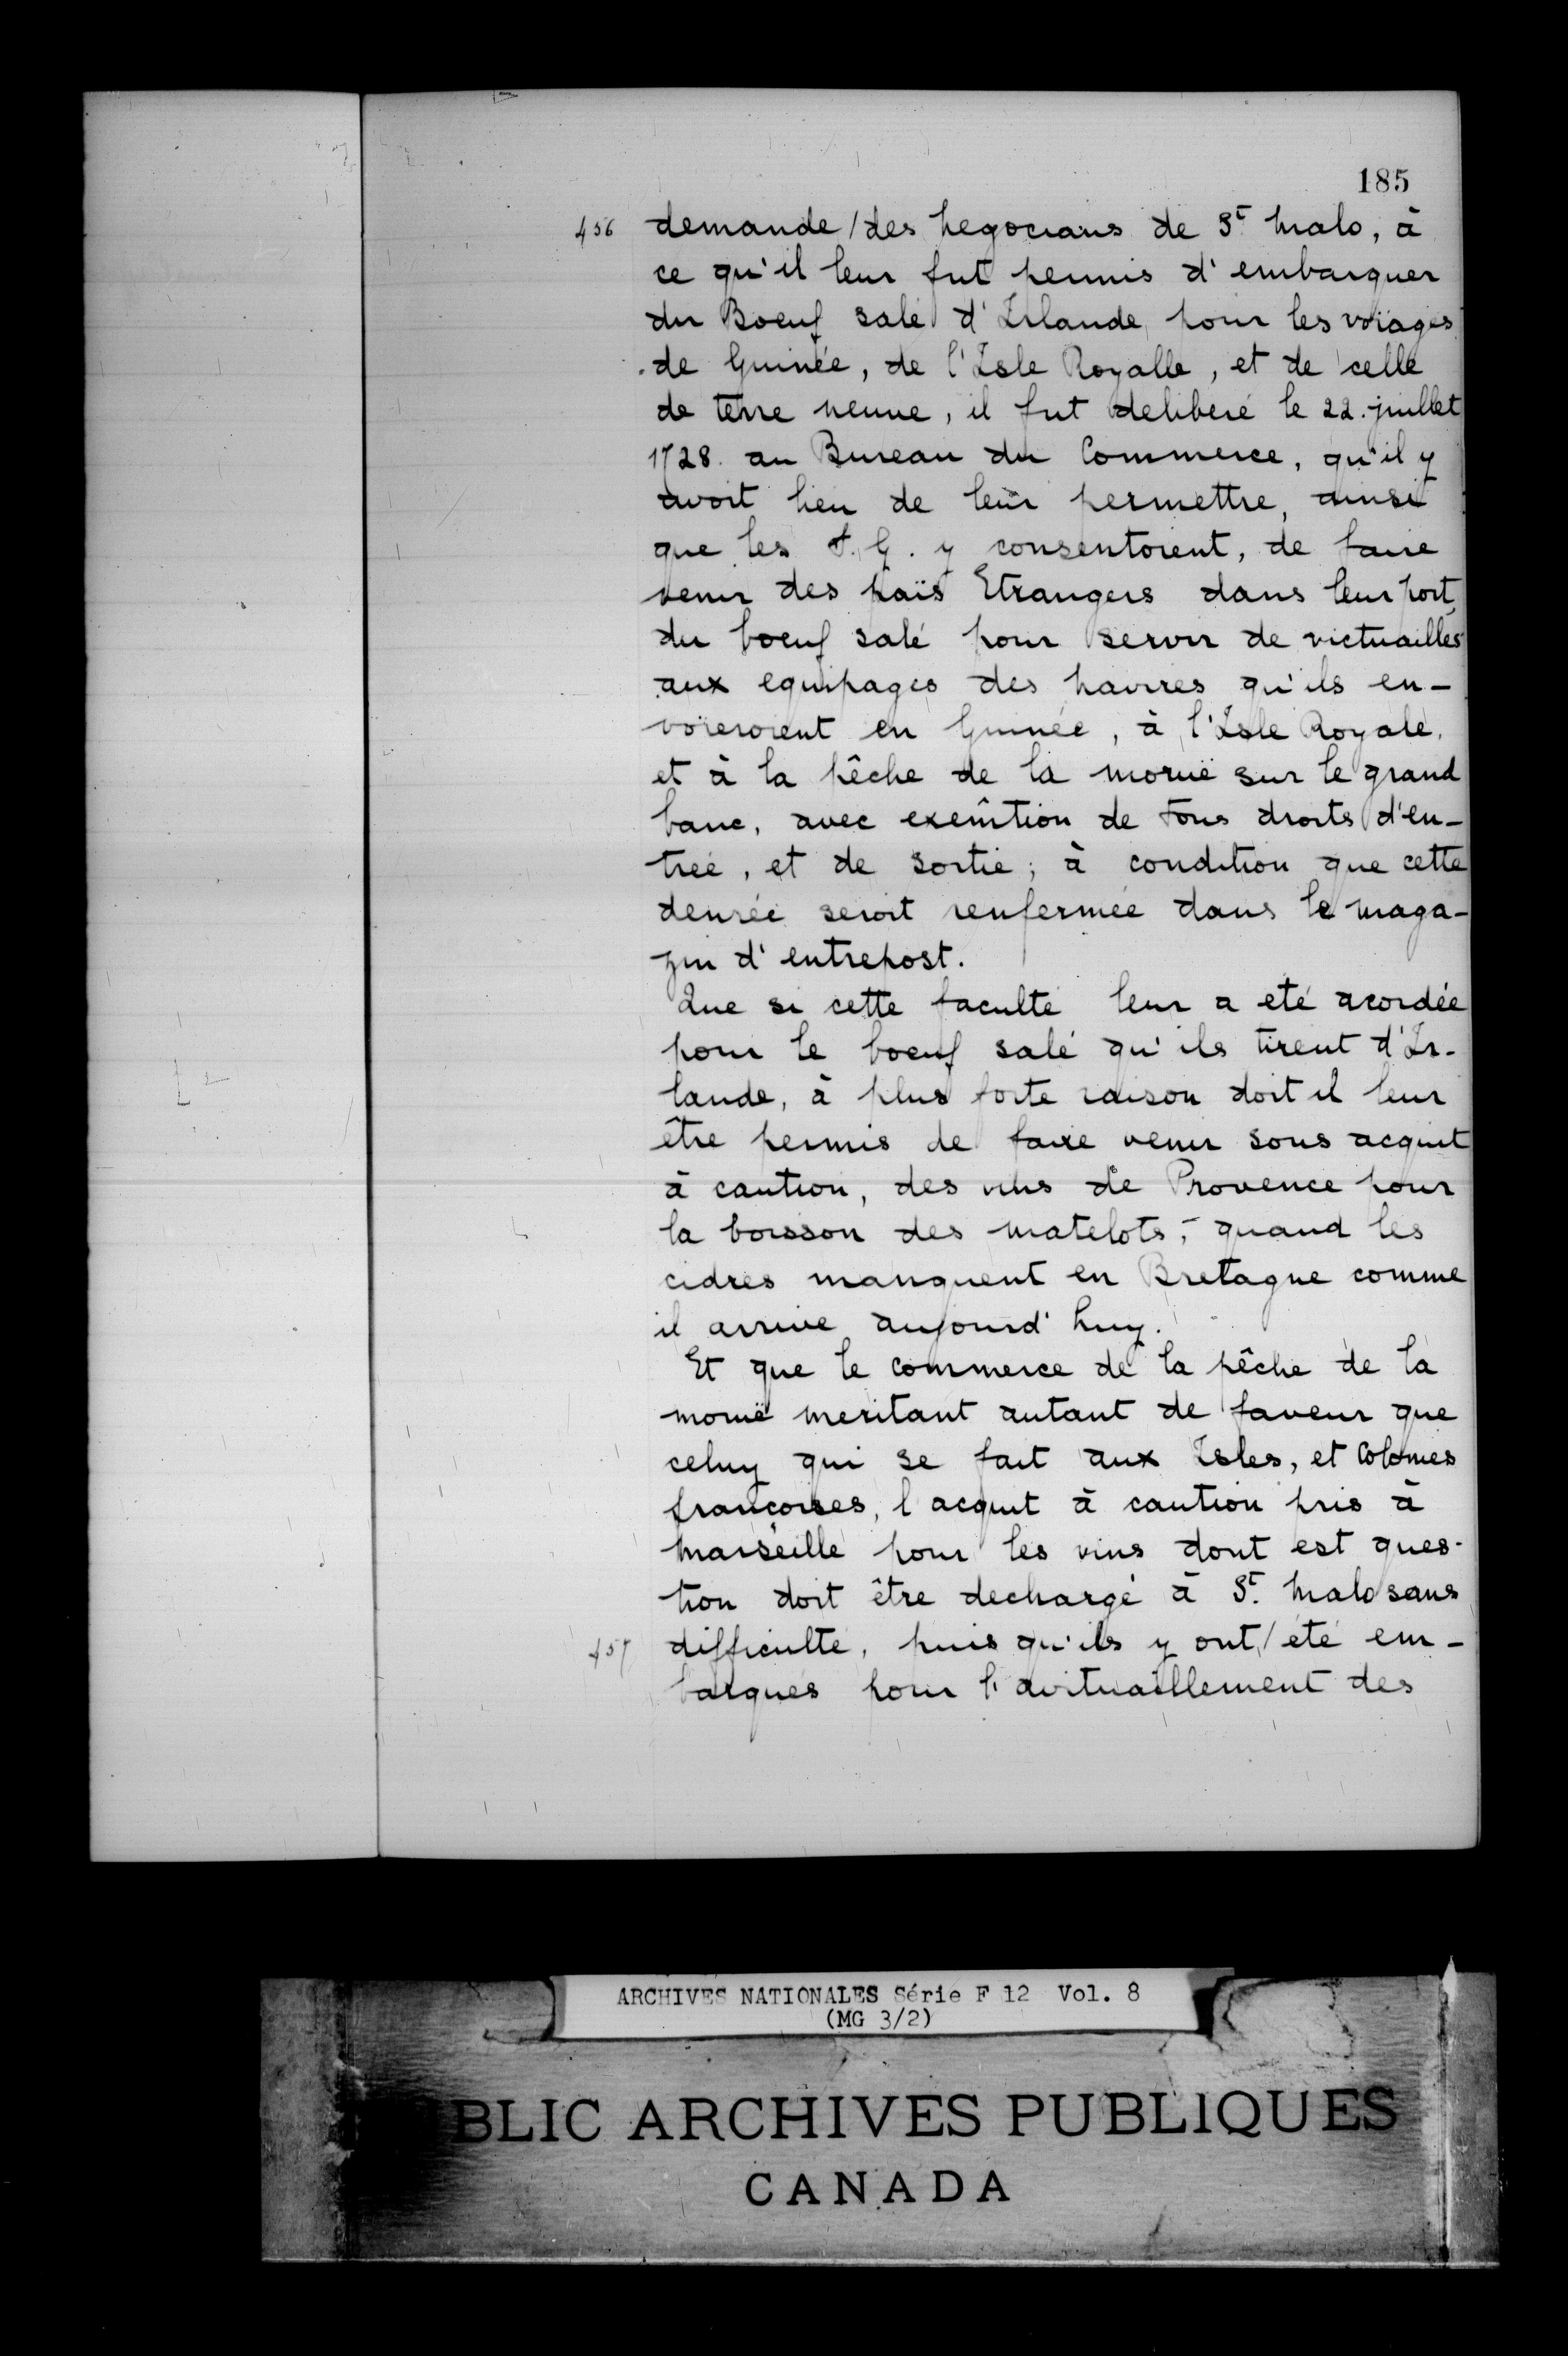 185
456 demande / des negocians de St. Malo, à
ce qu'il leur fut permis d'embarquer
du Boeuf salé d'Irlande, pour les voïages
de Guinée, de l'Isle Royalle, et de celle
de terre neuve, il fut deliberé le 22. juillet
1728. au Bureau du Commerce, qu'il y
avoit lieu de leur permettre, ainsi
que les f. G. y consentoient, de faire
venir des païs Etrangers dans leur port,
du boeuf salé pour servir de victuailles
aux equipages des navires qu'ils en-
voïeroient en Guinée, à l'Isle Royale,
et à la pêche de la moruë sur le grand
banc, avec exemtion de tous droits d'en-
treé, et de sortie; à condition que cette
denrée seroit renfermée dans le maga-
zin d'entrepost.
Que si cette faculté leur a eté acordée
pour le boeuf salé qu'ils tirent d'Ir-
lande, à plus forte raison doit il leur
être permis de faire venir sous acquit
à caution, des vins de Provence pour
la boisson des matelots, quand les
cidres manquent en Bretagne comme
il arrive aujourd'huy.
Et que le commerce de la pêche de la
moruë meritant autant de faveur que
celuy qui se fait aux Isles, et Colonies
françoises, l'acquit à caution pris à
Marseille pour les vins dont est ques-
tion doit être dechargé à St. Malo sans
457 difficulté, puis qu'ils y ont / été em-
barqués pour l'avituaillement des
ARCHIVES NATIONALES Série F 12 Vol. 8
(MG 3/2)
BLIC ARCHIVES PUBLIQUES
CANADA